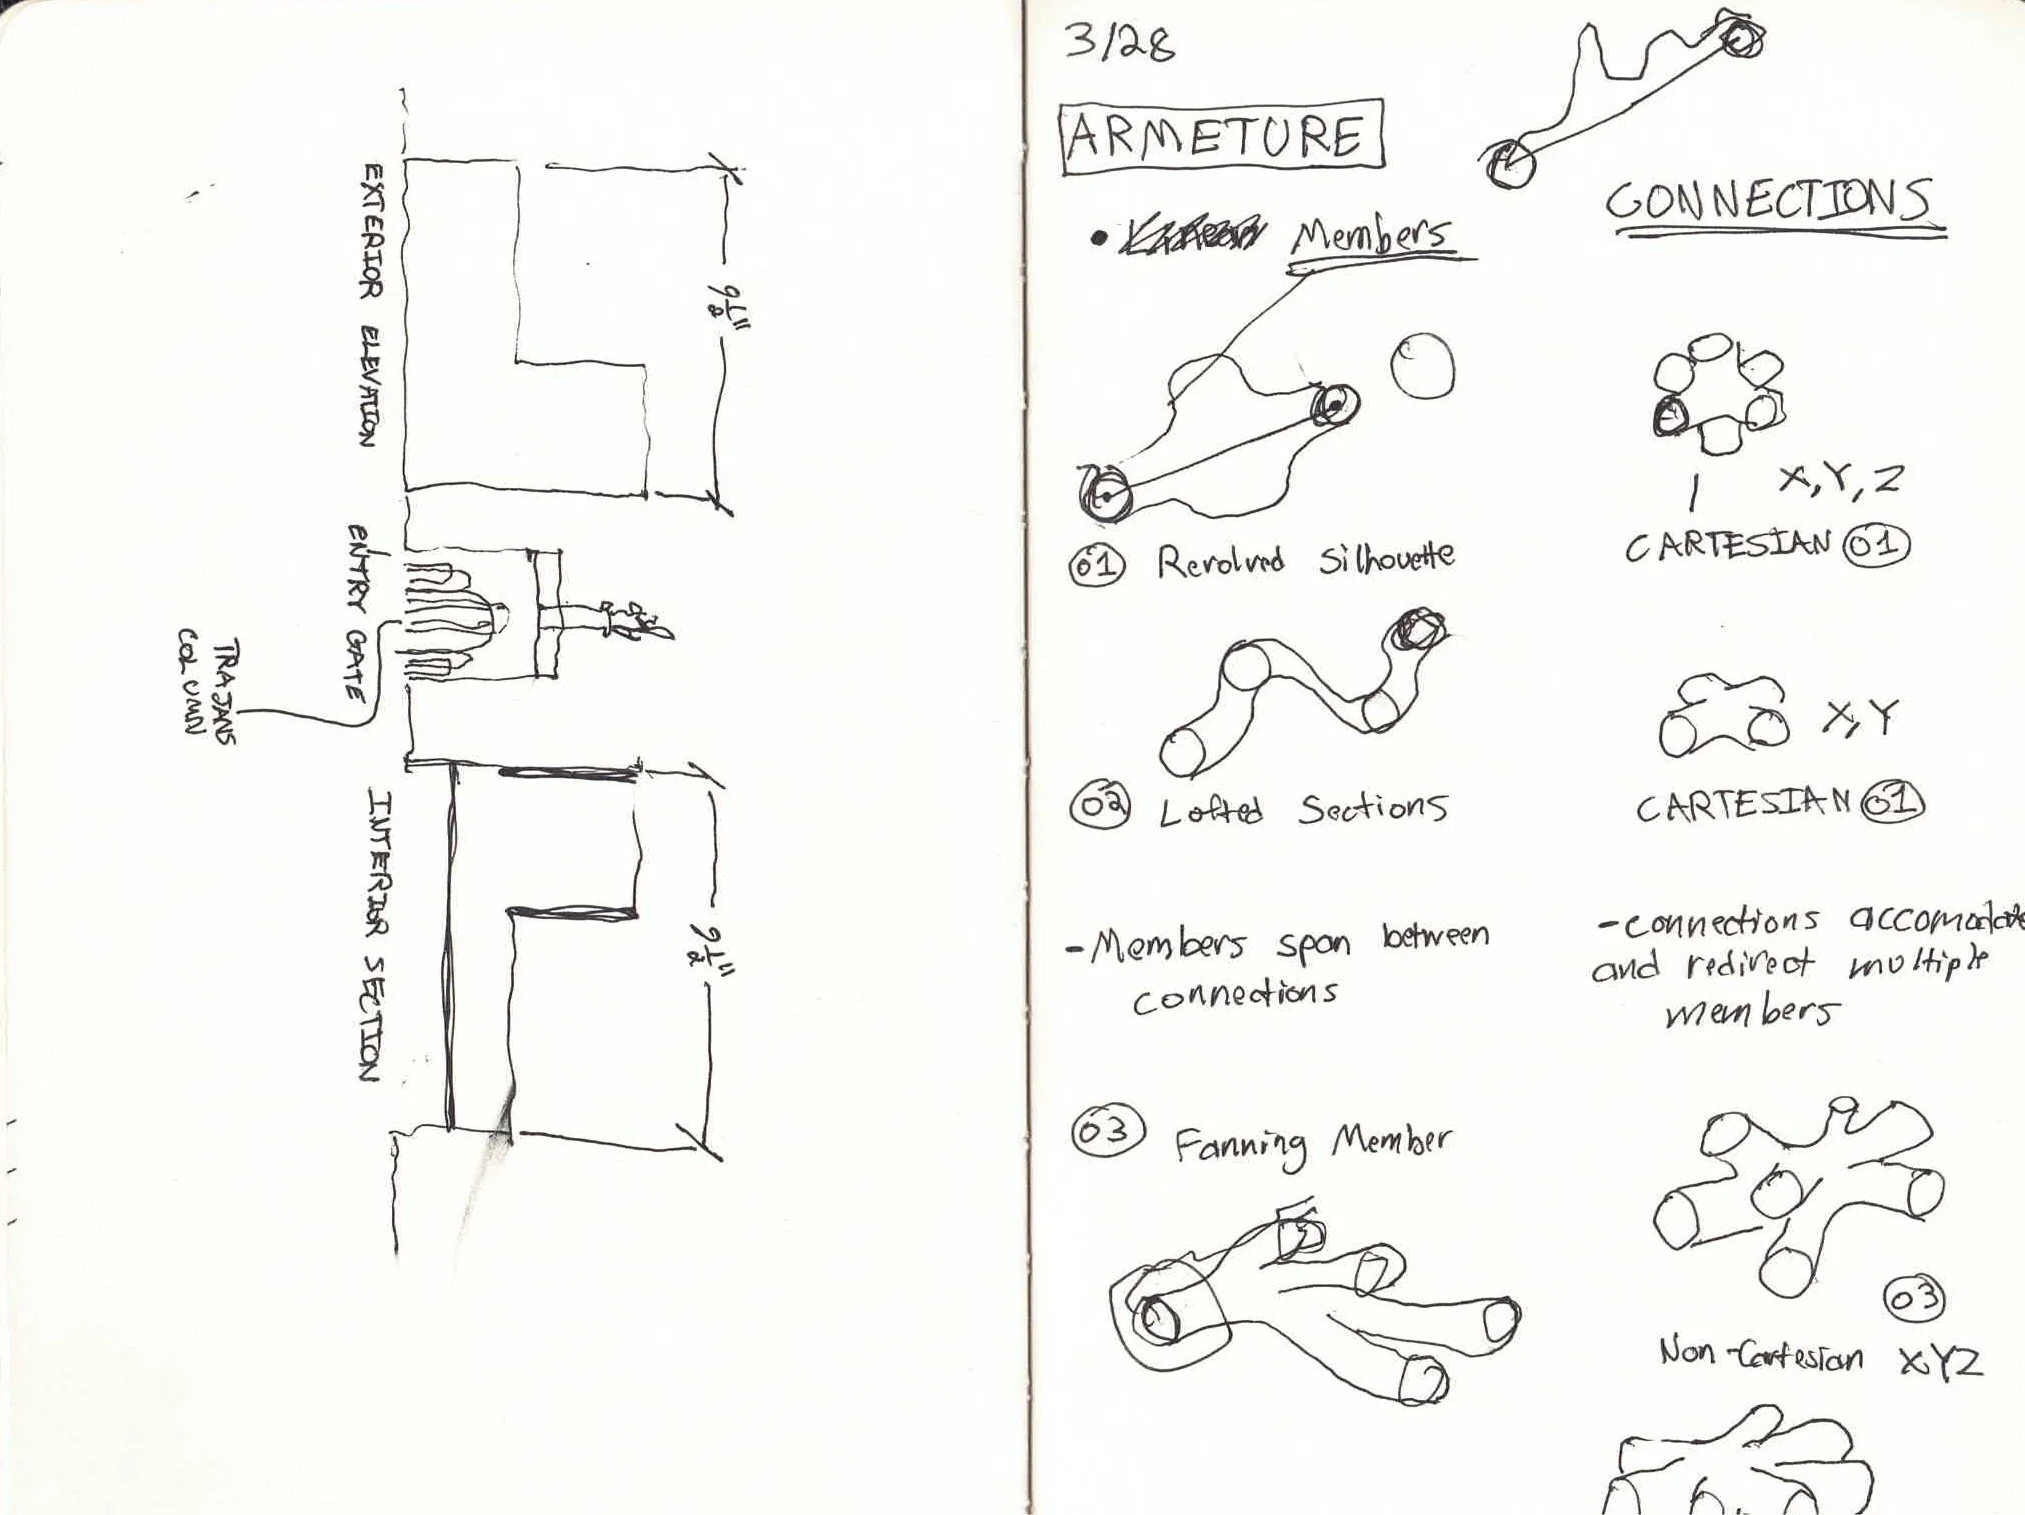 EXTERIOR ELEVATION
9 1/2"
ENTRY GATE
TRAJANS
COLUMN
INTERIOR SECTION
9 1/2"
3/28
ARMETURE
• Members
01 Revolved Silhouette
02 Lofted Sections
- Members span between
connections
03 Fanning Member
CONNECTIONS
X, Y, Z
CARTESIAN 01
X, Y
CARTESIAN 01
- connections accomodate
and redirect multiple
members
03
Non-Cartesian XYZ